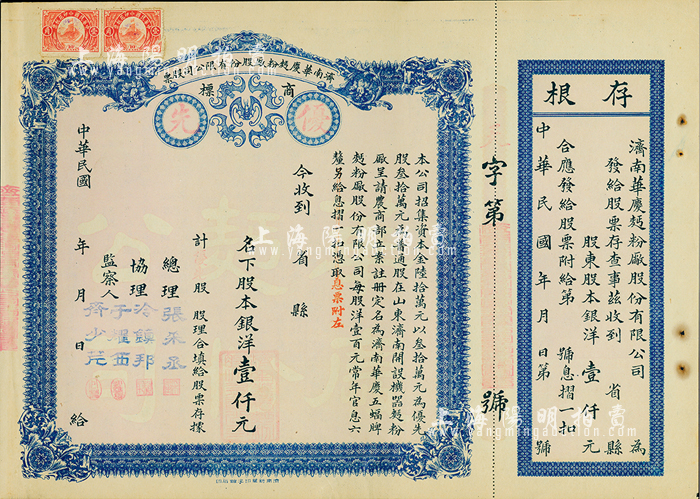 濟南華慶麪粉廠股份有限公司股票
商標
優先
本公司招集資本金陸拾萬元以叁拾萬元為優先
股叁拾萬元為普通股在山東濟南開設機器麪粉
廠呈請農商部立案註册定名為濟南華慶五蝠牌
麪粉廠股份有限公司每股洋壹百元常年官息六
釐另給息摺一扣憑取息票附左
今收到
省 縣
名下股本銀洋壹仟元
計 股 股理合填給股票存據
總理 張采丞
協理 冷鎮邦
監察人 于耀西
齊少芝
中華民國 年 月 日 給
字第 號
存根
濟南華慶麪粉廠股份有限公司 為
發給股票存查事茲收到 省 縣
股東股本銀洋 壹仟元
合應發給股票附給第 號息摺一扣
中華民國 年 月 日第 號
上海陽明拍賣
www.yangmingauction.com